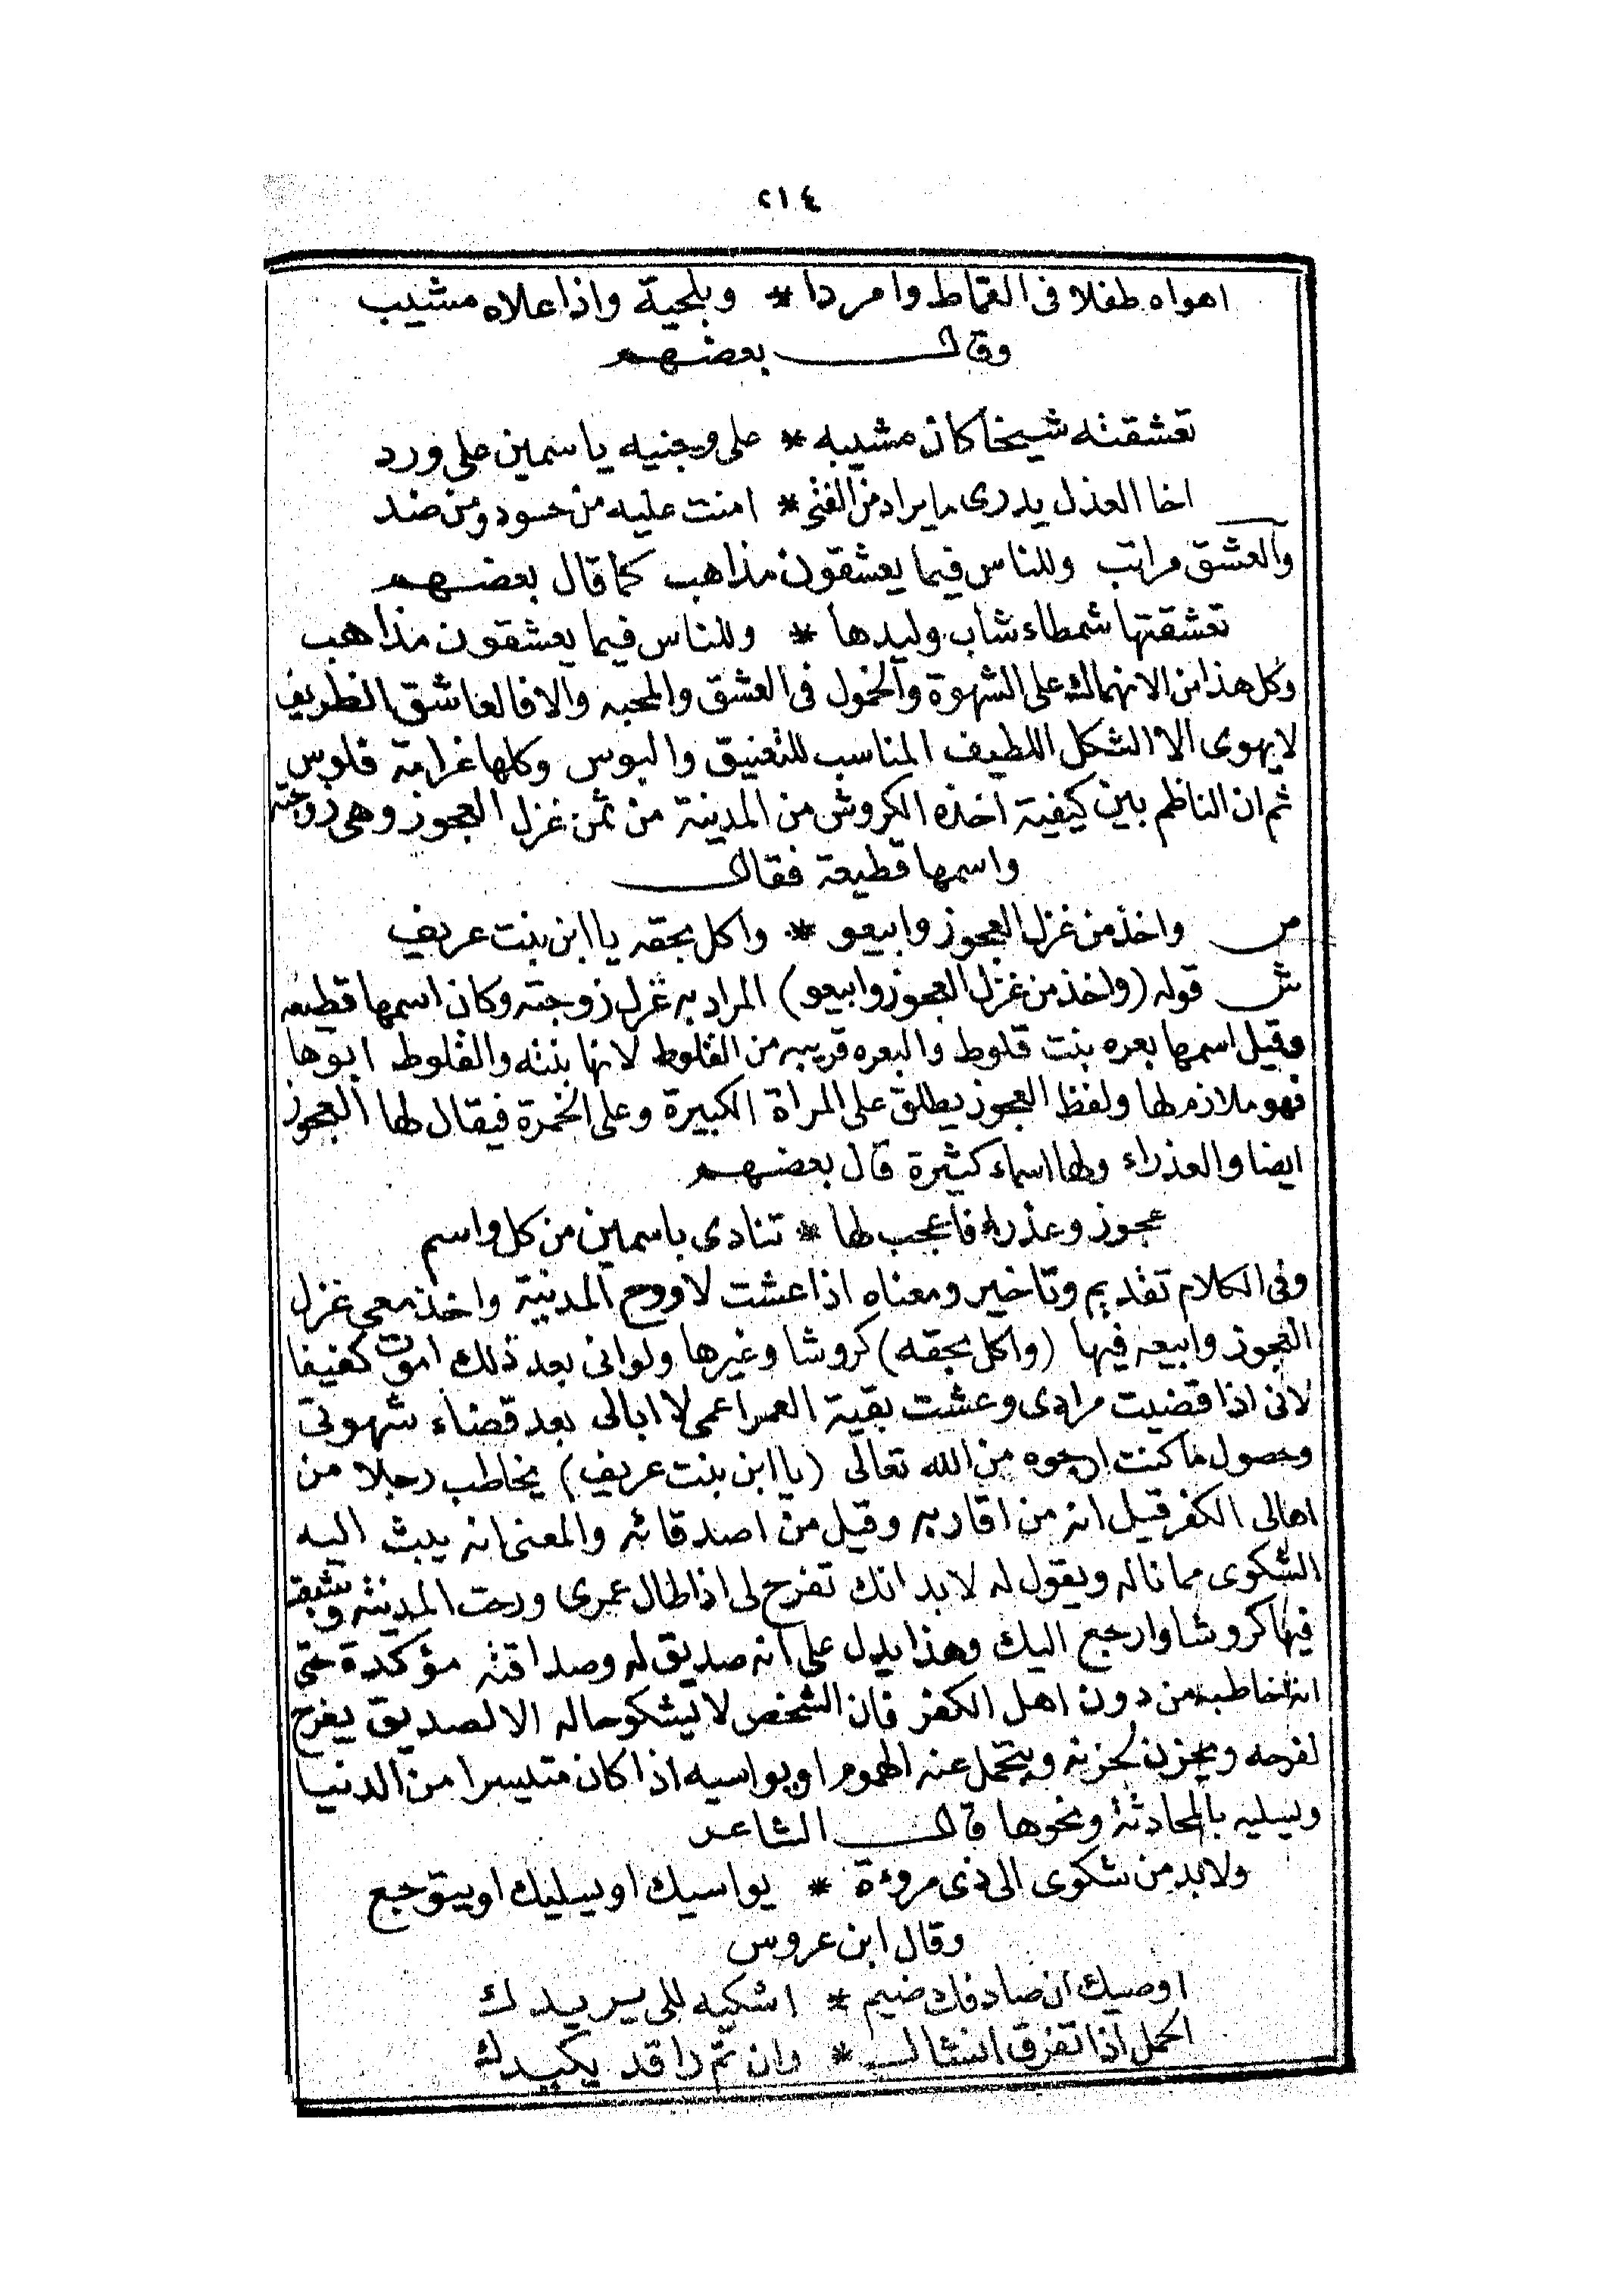 ٢١٤
اهواه طفلا فى القماط وامردا * وبلحية واذا علاه مشيب
وقال بعضهم
تعشقته شيخا كان مشيبه * على وجنيه ياسمين على ورد
اخا العذل يدرى ما يراد من الفتى * امنت عليه من حسود ومن ضد
والعشق مراتب وللناس فيما يعشقون مذاهب كما قال بعضهم
تعشقتها شمطاء شاب وليدها * وللناس فيما يعشقون مذاهب
وكل هذا من الانهماك على الشهوة والخمول فى العشق والمحبه والا فالعاشق الظريف
لا يهوى الا الشكل اللطيف المناسب للتعنيق والبوس وكلها غرامة فلوس
ثم ان الناظم بين كيفية اخذه الكروش من المدينة من ثمن غزل العجوز وهى زوجته
واسمها قطيعة فقال
ص واخذ من غزل العجوز وابيعو * واكل بحقه يا ابن بنت عريف
ش قوله (واخذ من غزل العجوز وابيعو) المراد به غزل زوجته وكان اسمها قطيعه
وقيل اسمها بعره بنت قلوط والبعره قريبه من القلوط لانها بنته والقلوط ابوها
فهو ملازم لها ولفظ العجوز يطلق على المراة الكبيرة وعلى الخمرة فيقال لها العجوز
ايضا والعذراء ولها اسماء كثيرة قال بعضهم
عجوز وعذراء فاعجب لها * تنادى باسمين من كل واسم
وفى الكلام تقديم وتاخير ومعناه اذا عشت لاروح المدينة واخذ معى غزل
العجوز وابيعه فيها (واكل بحقه) كروشا وغيرها ولوانى بعد ذلك اموت كفيفا
لانى اذا قضيت مرادى وعشت بقية العمر اعمى لا ابالى بعد قضاء شهوتى
وحصول ما كنت ارجوه من الله تعالى (يا ابن بنت عريف) يخاطب رجلا من
اهالى الكفر قيل انه من اقاربه وقيل من اصدقائه والمعنى انه يبث اليه
الشكوى مما ناله ويقول له لابد انك تفرح لى اذا طال عمرى ورحت المدينة وشبعت
فيها كروشا وارجع اليك وهذا يدل على انه صديق له وصداقته مؤكدة حتى
انه خاطبه من دون اهل الكفر فان الشخص لا يشكو حاله الا لصديق يفرح
لفرحه ويحزن لحزنه ويتحمل عنه الهموم او يواسيه اذا كان متيسرا من الدنيا
ويسليه بالمحادثة ونحوها قال الشاعر
ولابد من شكوى الى ذى مروءة * يواسيك او يسليك او يتوجع
وقال ابن عروس
اوصيك ان صادفك ضيم * اشكيه للى يريدك
الحمل اذا تفرق انشال * وان تم راقد يكيدك